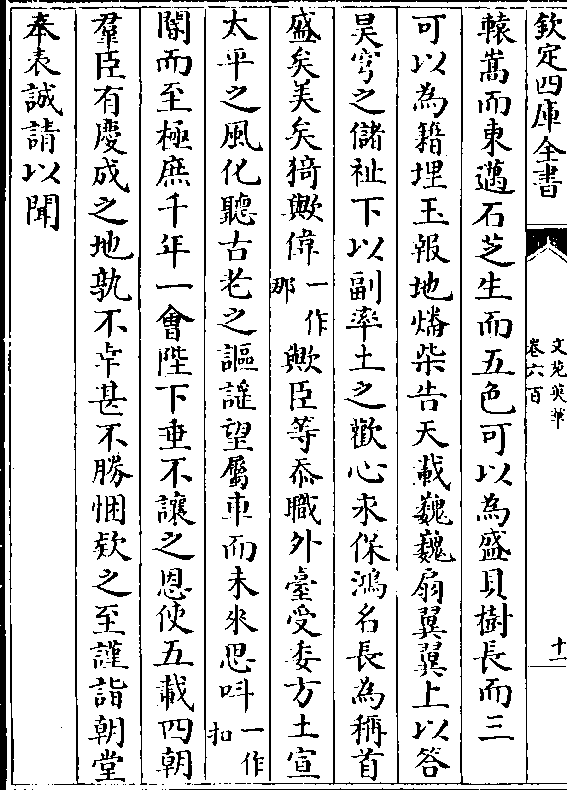 欽定四庫全書
文苑英華
卷六百
十一
轅嵩而東邁石芝生而五色可以為盛貝樹長而三
可以為籍埋玉報地燔柴告天載巍巍扇翼翼上以答
昊穹之儲祉下以副率土之歡心永保鴻名長為稱首
盛矣美矣猗歟偉一作那歟臣等忝職外臺受委方土宣
太平之風化聽古老之謳謡望屬車而未來思呌一作扣
閽而至極庶千年一會陛下垂不讓之恩使五載四朝
羣臣有慶成之地孰不幸甚不勝悃欵之至謹詣朝堂
奉表誠請以聞